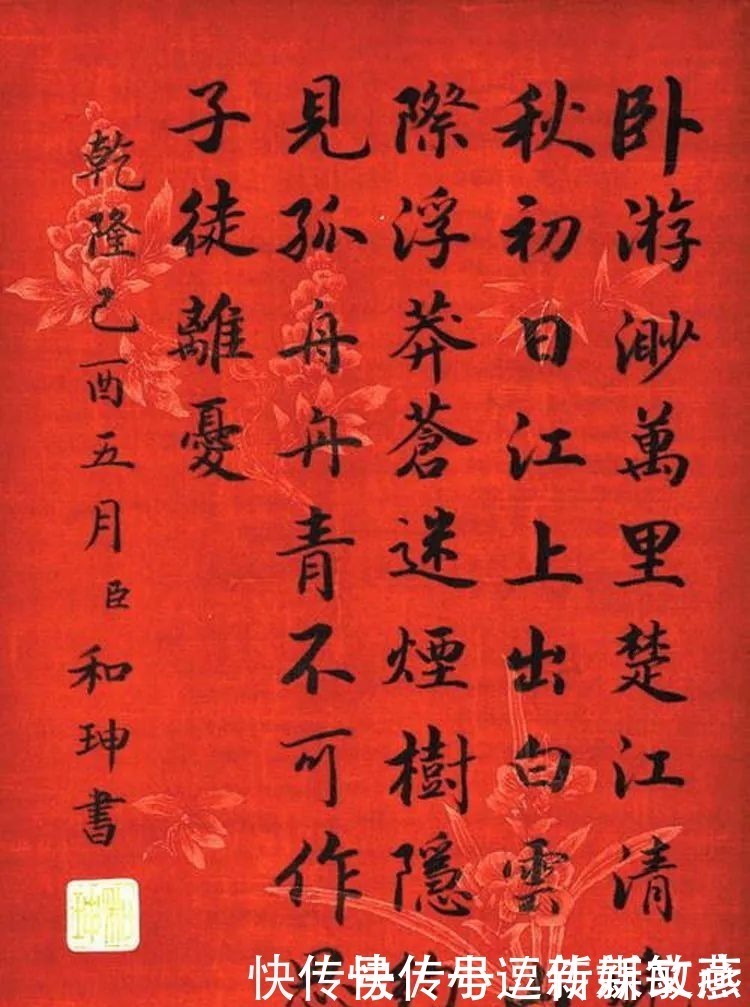 卧游渺萬里楚江清
秋初日江上出白雲
際浮莽蒼迷煙樹隱
見孤舟舟青不可作
子徒離憂
乾隆己酉五月臣和珅書